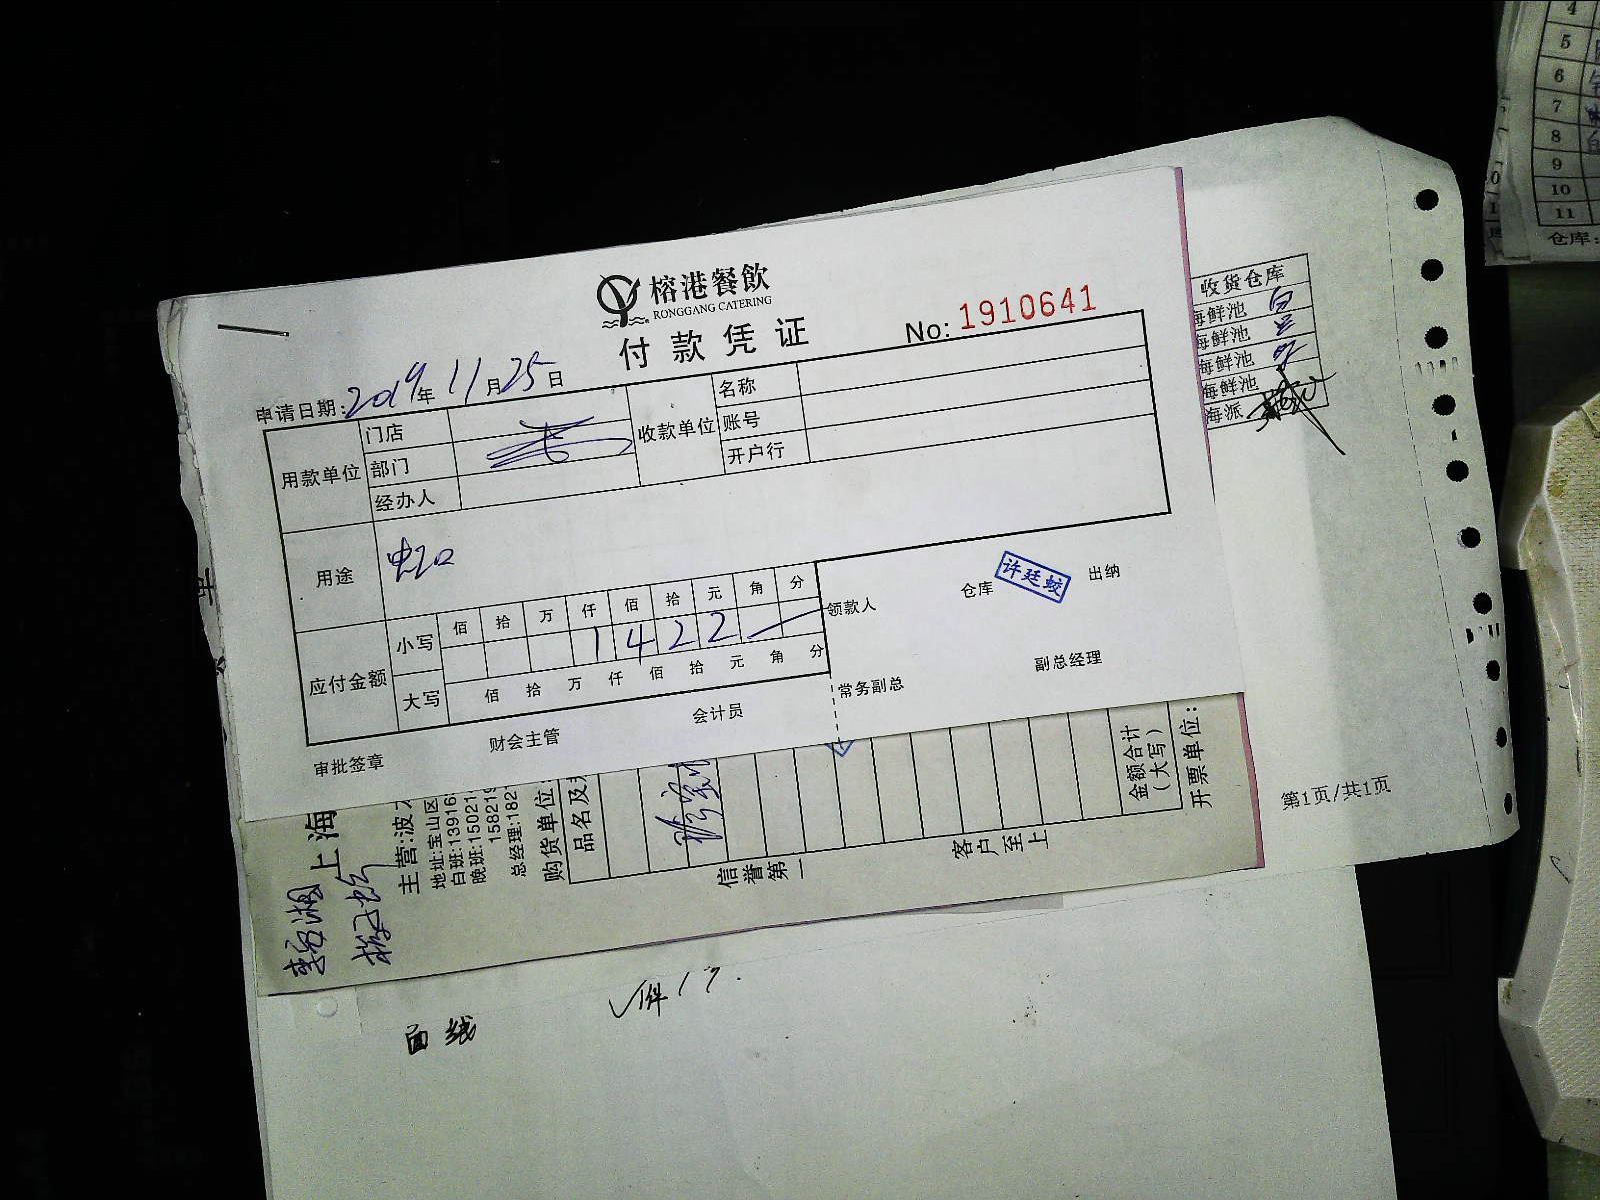 榕港餐飲
RONGGANG CATERING
付款凭证
No: 1910641
申请日期: 2019年11月25日
用款单位
门店
部门
经办人
收款单位
名称
账号
开户行
用途
应付金额
小写
佰 拾 万 仟 佰 拾 元 角 分
1 4 2 2
大写
佰 拾 万 仟 佰 拾 元 角 分
领款人
仓库
许廷蛟
出纳
常务副总
副总经理
审批签章
财会主管
会计员
收货仓库
海鲜池
海鲜池
海鲜池
海鲜池
海派
第1页/共1页
上海
主营:波
地址:宝山区
白班:13916
晚班:15021
15821
总经理:182
购货单位
品名及
信誉第一
客户至上
金额合计
(大写)
开票单位:
面线
4
5
6
7
8
9
10
11
仓库: